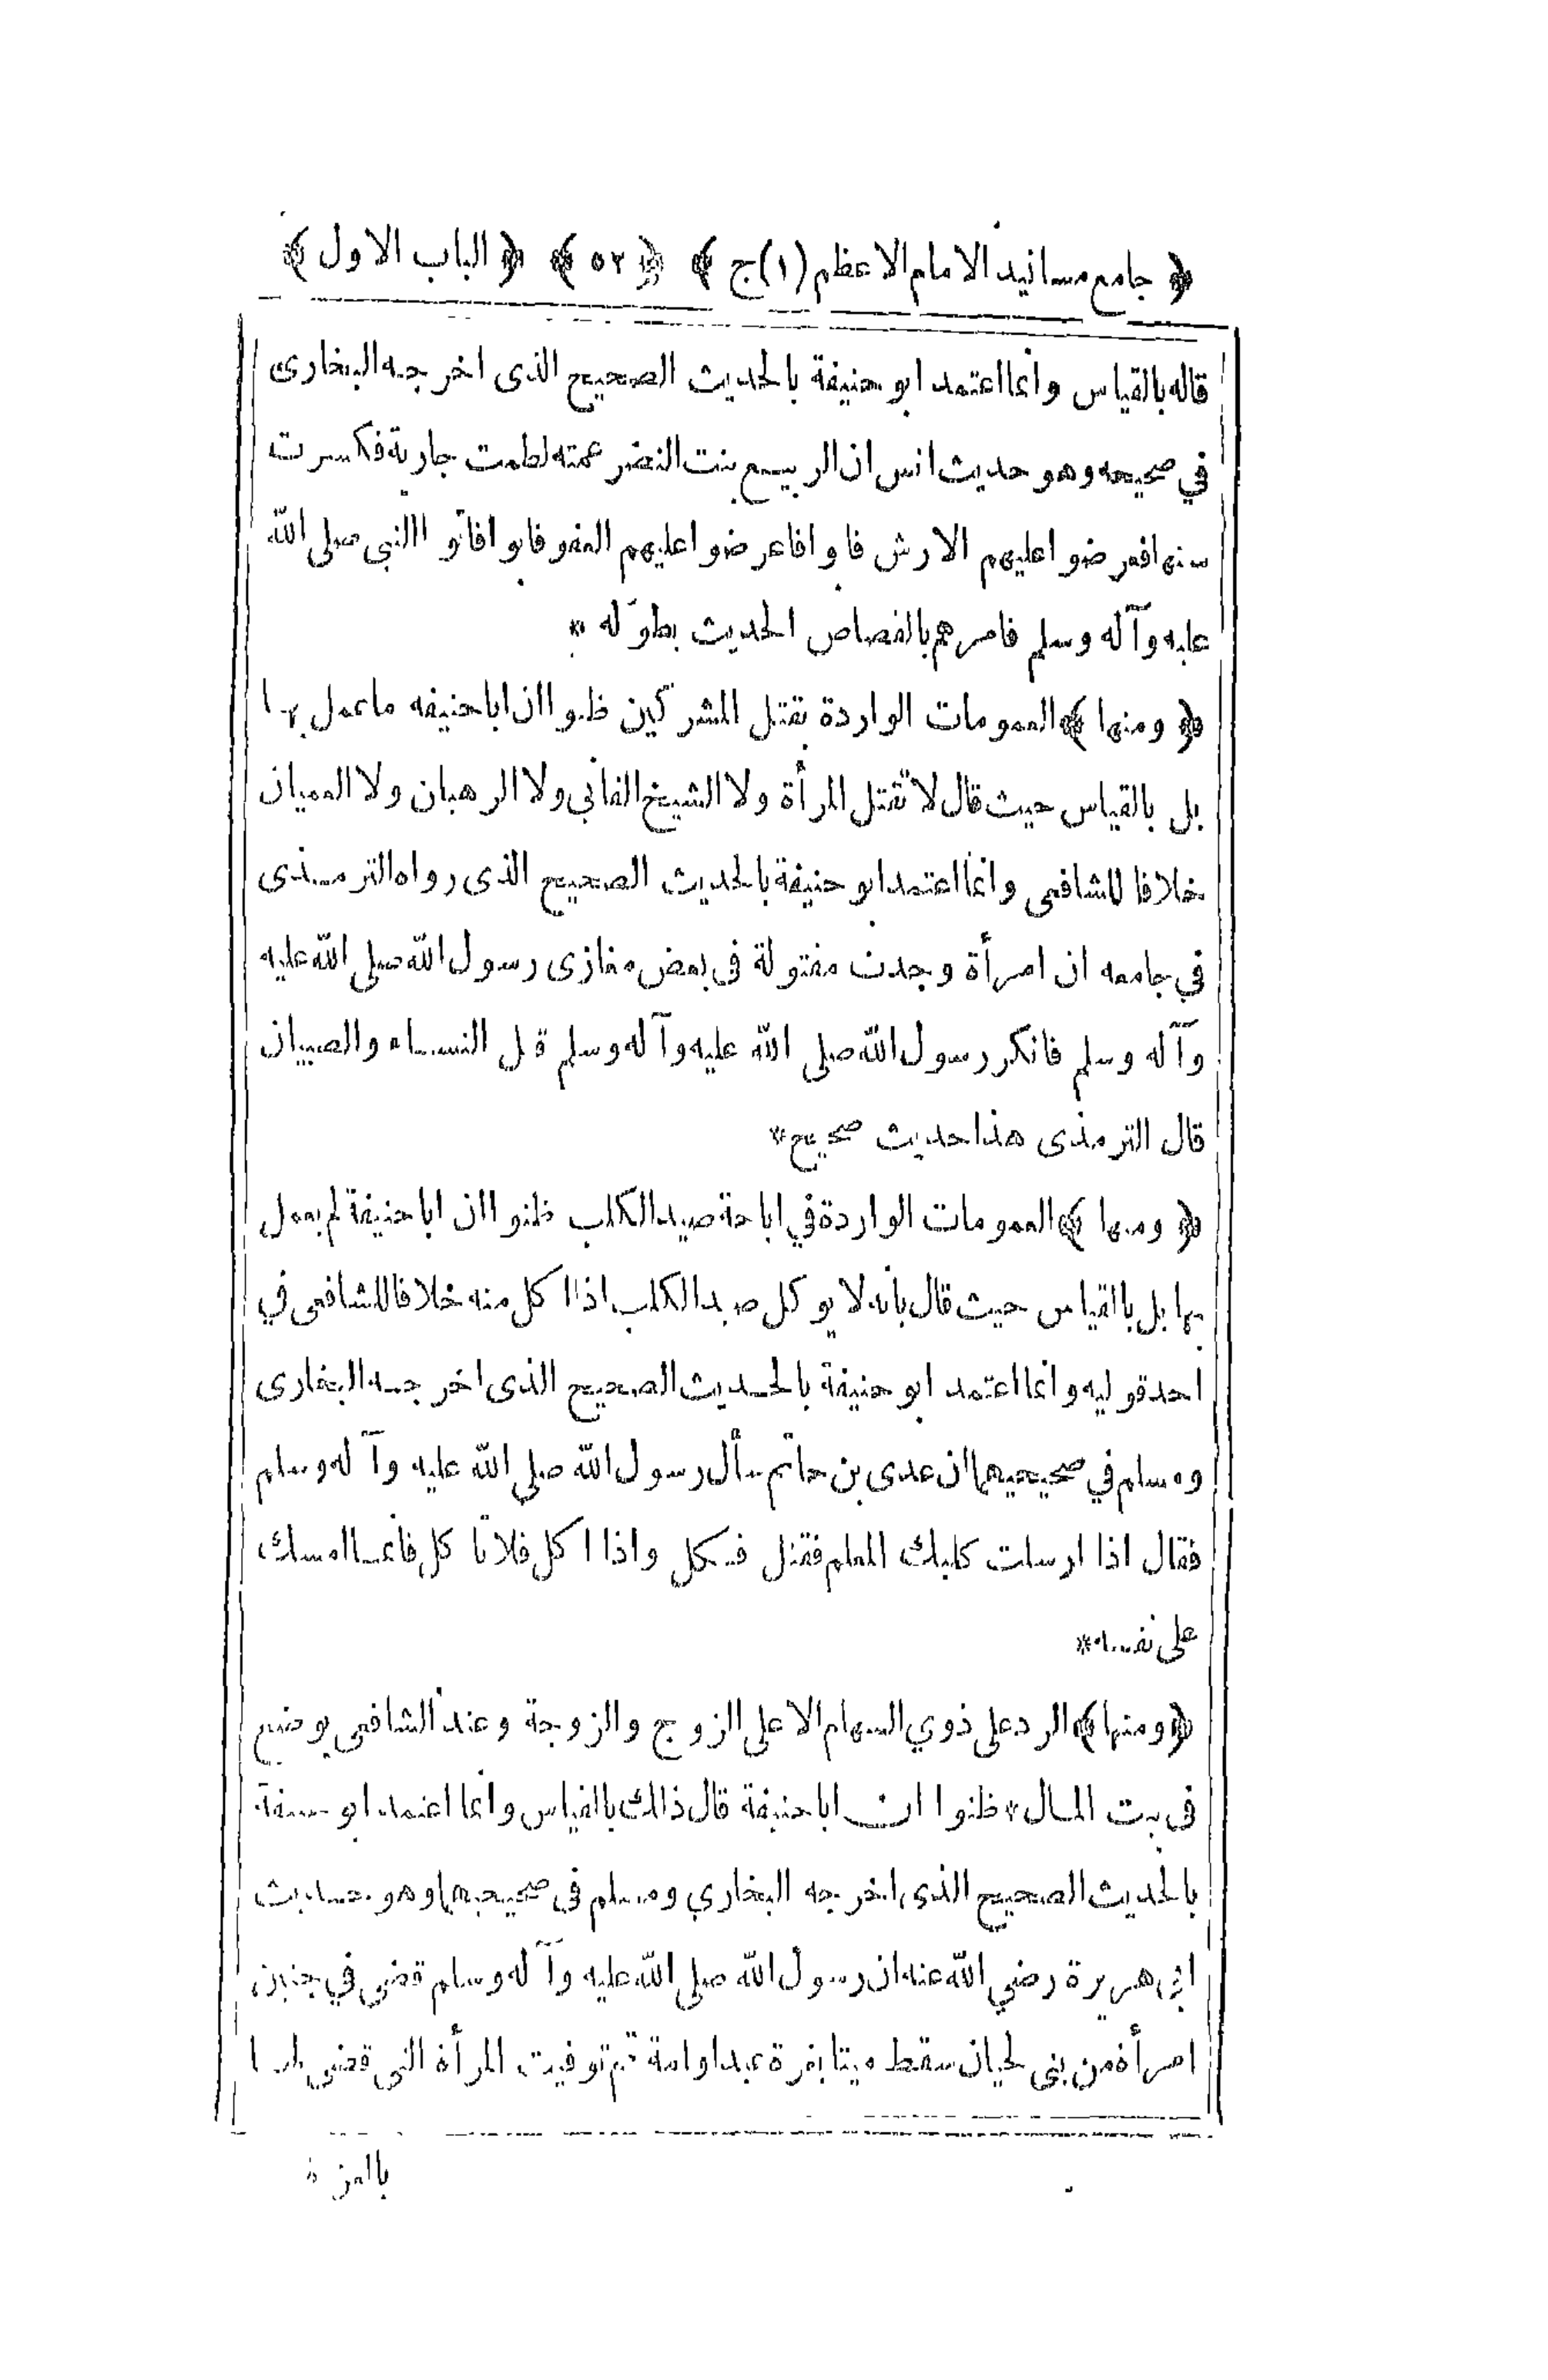 ﴿ جامع مسانيد الامام الاعظم (١)ج ﴾ ﴿ ٥٢ ﴾ ﴿ الباب الاول ﴾
قاله بالقياس وانما اعتمد ابو حنيفة بالحديث الصحيح الذى اخرجه البخارى
في صحيحه وهو حديث انس ان الربيع بنت النضر عمته لطمت جارية فكسرت
سنها فعرضوا عليهم الارش فابوا فاعرضوا عليهم العفو فابوا فاتوا النبي صلى الله
عليه وآله وسلم فامرهم بالقصاص الحديث بطوله *
﴿ ومنها ﴾ العمومات الواردة بقتل المشركين ظنوا ان ابا حنيفه ما عمل بها
بل بالقياس حيث قال لا تقتل المرأة ولا الشيخ الفاني ولا الرهبان ولا العميان
خلافا للشافعى وانما اعتمد ابو حنيفة بالحديث الصحيح الذى رواه الترمذى
في جامعه ان امرأة وجدت مقتولة فى بعض مغازى رسول الله صلى الله عليه
وآله وسلم فانكر رسول الله صلى الله عليه وآله وسلم قتل النساء والصبيان
قال الترمذى هذا حديث صحيح *
﴿ ومنها ﴾ العمومات الواردة في اباحة صيد الكلب ظنوا ان ابا حنيفة لم يعمل
بها بل بالقياس حيث قال بانه لا يوكل صيد الكلب اذا اكل منه خلافا للشافعى في
احد قوليه وانما اعتمد ابو حنيفة بالحديث الصحيح الذى اخرجه البخارى
ومسلم في صحيحيهما ان عدى بن حاتم سأل رسول الله صلى الله عليه وآله وسلم
فقال اذا ارسلت كلبك المعلم فقتل فكل واذا اكل فلا تاكل فانما امسك
على نفسه *
﴿ ومنها ﴾ الرد على ذوي السهام الا على الزوج والزوجة وعند الشافعى يوضع
فى بيت المال * ظنوا ان ابا حنيفة قال ذلك بالقياس وانما اعتمد ابو حنيفة
بالحديث الصحيح الذى اخرجه البخاري ومسلم فى صحيحيهما وهو حديث
ابى هريرة رضي الله عنه ان رسول الله صلى الله عليه وآله وسلم قضى في جنين
امرأة من بنى لحيان سقط ميتا بغرة عبد او امة ثم توفيت المرأة التى قضى لها
بالغرة